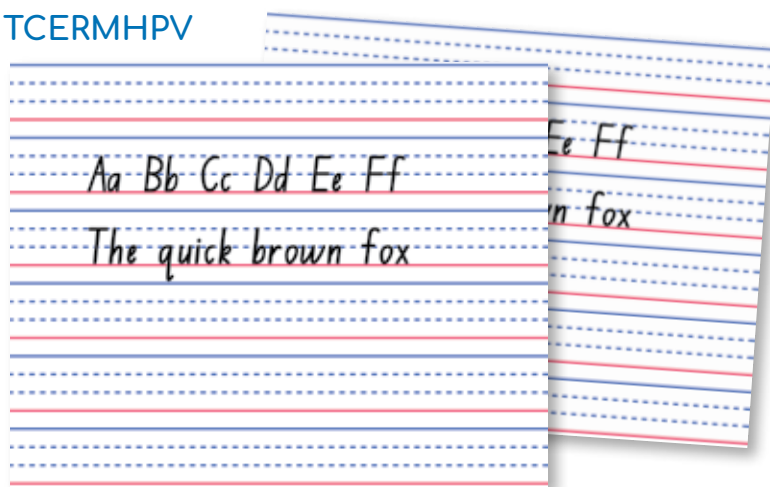 TCERMHPV
Aa Bb Cc Dd Ee Ff
The quick brown fox
Ee Ff
n fox